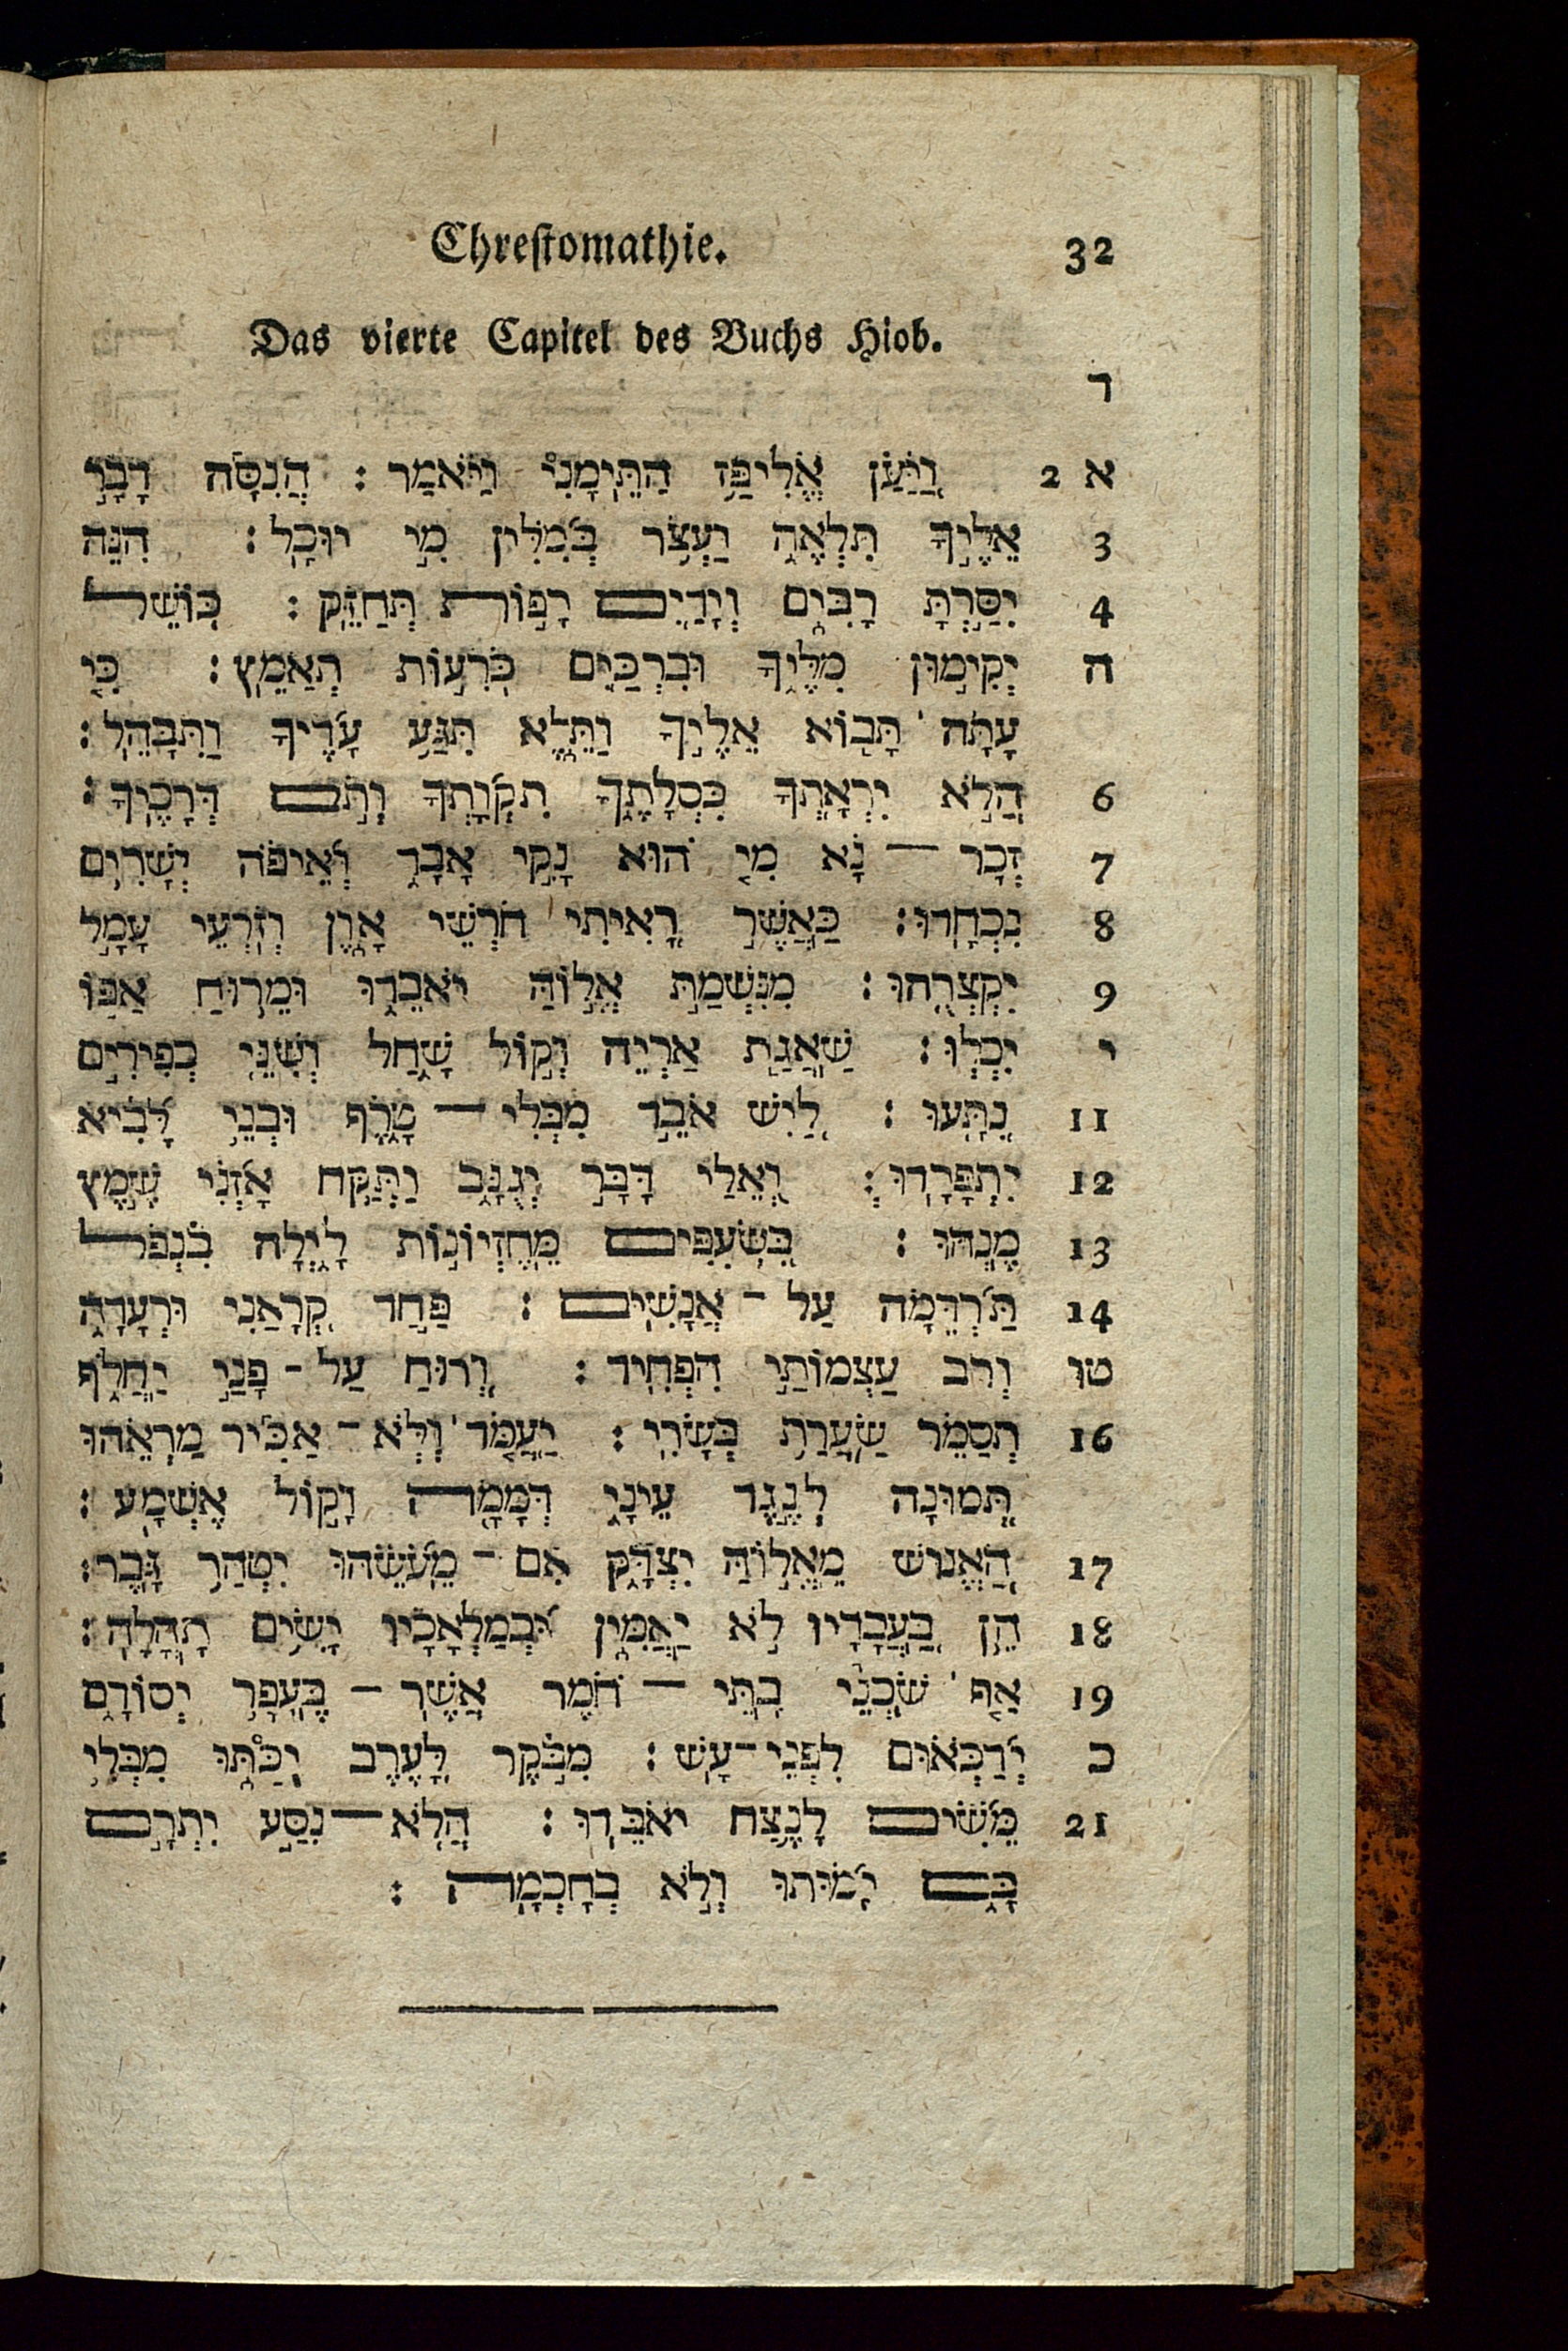 Chrestomathie. 32
Das vierte Capitel des Buchs Hiob.
ד
א 2 וַיַּעַן אֱלִיפַז הַתֵּימָנִי וַיֹּאמַר׃ הֲנִסָּה דָבָר
3 אֵלֶיךָ תִּלְאֶה וַעְצֹר בְּמִלִּין מִי יוּכָל׃ הִנֵּה
4 יִסַּרְתָּ רַבִּים וְיָדַיִם רָפוֹת תְּחַזֵּק׃ כּוֹשֵׁל
ה יְקִימוּן מִלֶּיךָ וּבִרְכַּיִם כֹּרְעוֹת תְּאַמֵּץ׃ כִּי
עַתָּה תָּבוֹא אֵלֶיךָ וַתֵּלֶא תִּגַּע עָדֶיךָ וַתִּבָּהֵל׃
6 הֲלֹא יִרְאָתְךָ כִּסְלָתֶךָ תִּקְוָתְךָ וְתֹם דְּרָכֶיךָ׃
7 זְכָר־נָא מִי הוּא נָקִי אָבָד וְאֵיפֹה יְשָׁרִים
8 נִכְחָדוּ׃ כַּאֲשֶׁר רָאִיתִי חֹרְשֵׁי אָוֶן וְזֹרְעֵי עָמָל
9 יִקְצְרֻהוּ׃ מִנִּשְׁמַת אֱלוֹהַּ יֹאבֵדוּ וּמֵרוּחַ אַפּוֹ
י יִכְלוּ׃ שַׁאֲגַת אַרְיֵה וְקוֹל שָׁחַל וְשִׁנֵּי כְפִירִים
11 נִתָּעוּ׃ לַיִשׁ אֹבֵד מִבְּלִי־טָרֶף וּבְנֵי לָבִיא
12 יִתְפָּרָדוּ׃ וְאֵלַי דָּבָר יְגֻנָּב וַתִּקַּח אָזְנִי שֶׁמֶץ
13 מֶנְהוּ׃ בִּשְׂעִפִּים מֵחֶזְיוֹנוֹת לָיְלָה בִּנְפֹל
14 תַּרְדֵּמָה עַל־אֲנָשִׁים׃ פַּחַד קְרָאַנִי וּרְעָדָה
טו וְרֹב עַצְמוֹתַי הִפְחִיד׃ וְרוּחַ עַל־פָּנַי יַחֲלֹף
16 תְּסַמֵּר שַׂעֲרַת בְּשָׂרִי׃ יַעֲמֹד וְלֹא־אַכִּיר מַרְאֵהוּ
תְּמוּנָה לְנֶגֶד עֵינָי דְּמָמָה וָקוֹל אֶשְׁמָע׃
17 הַאֱנוֹשׁ מֵאֱלוֹהַּ יִצְדָּק אִם־מֵעֹשֵׂהוּ יִטְהַר גָּבֶר׃
18 הֵן בַּעֲבָדָיו לֹא יַאֲמִין וּבְמַלְאָכָיו יָשִׂים תָּהֳלָה׃
19 אַף שֹׁכְנֵי בָתֵּי־חֹמֶר אֲשֶׁר־בֶּעָפָר יְסוֹדָם
כ יְדַכְּאוּם לִפְנֵי־עָשׁ׃ מִבֹּקֶר לָעֶרֶב יֻכַּתּוּ מִבְּלִי
21 מֵשִׂים לָנֶצַח יֹאבֵדוּ׃ הֲלֹא־נִסַּע יִתְרָם
בָּם יָמוּתוּ וְלֹא בְחָכְמָה׃